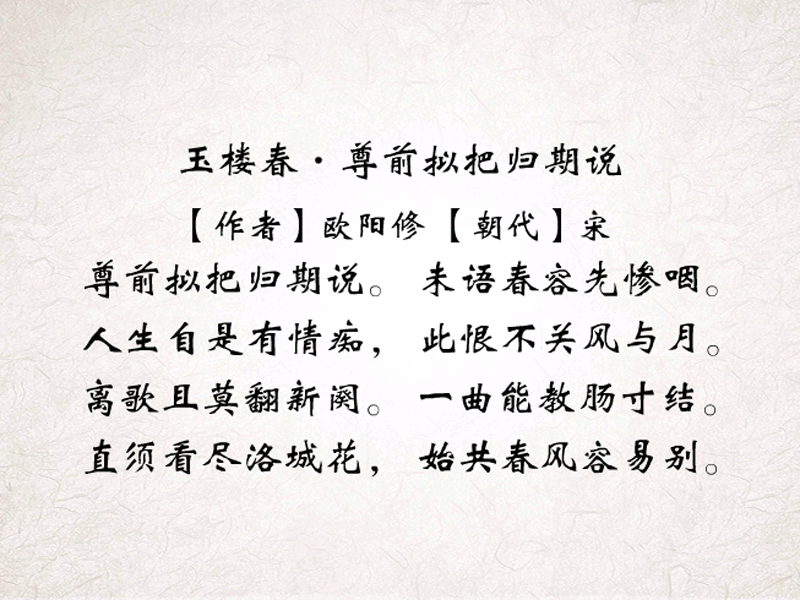 玉楼春·尊前拟把归期说
【作者】欧阳修【朝代】宋
尊前拟把归期说。 未语春容先惨咽。
人生自是有情痴， 此恨不关风与月。
离歌且莫翻新阕。 一曲能教肠寸结。
直须看尽洛城花， 始共春风容易别。